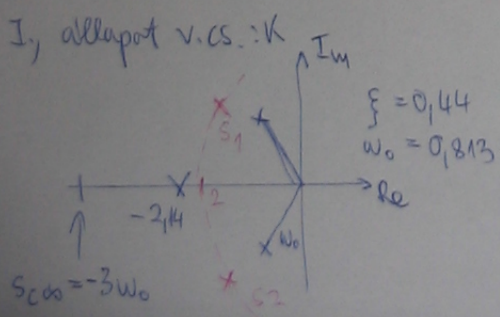 I, állapot v.cs.:K
Im
ξ = 0,44
ω₀ = 0,813
S₁
Re
-2,14
2
ω₀
S_c∞ = -3ω₀
S2